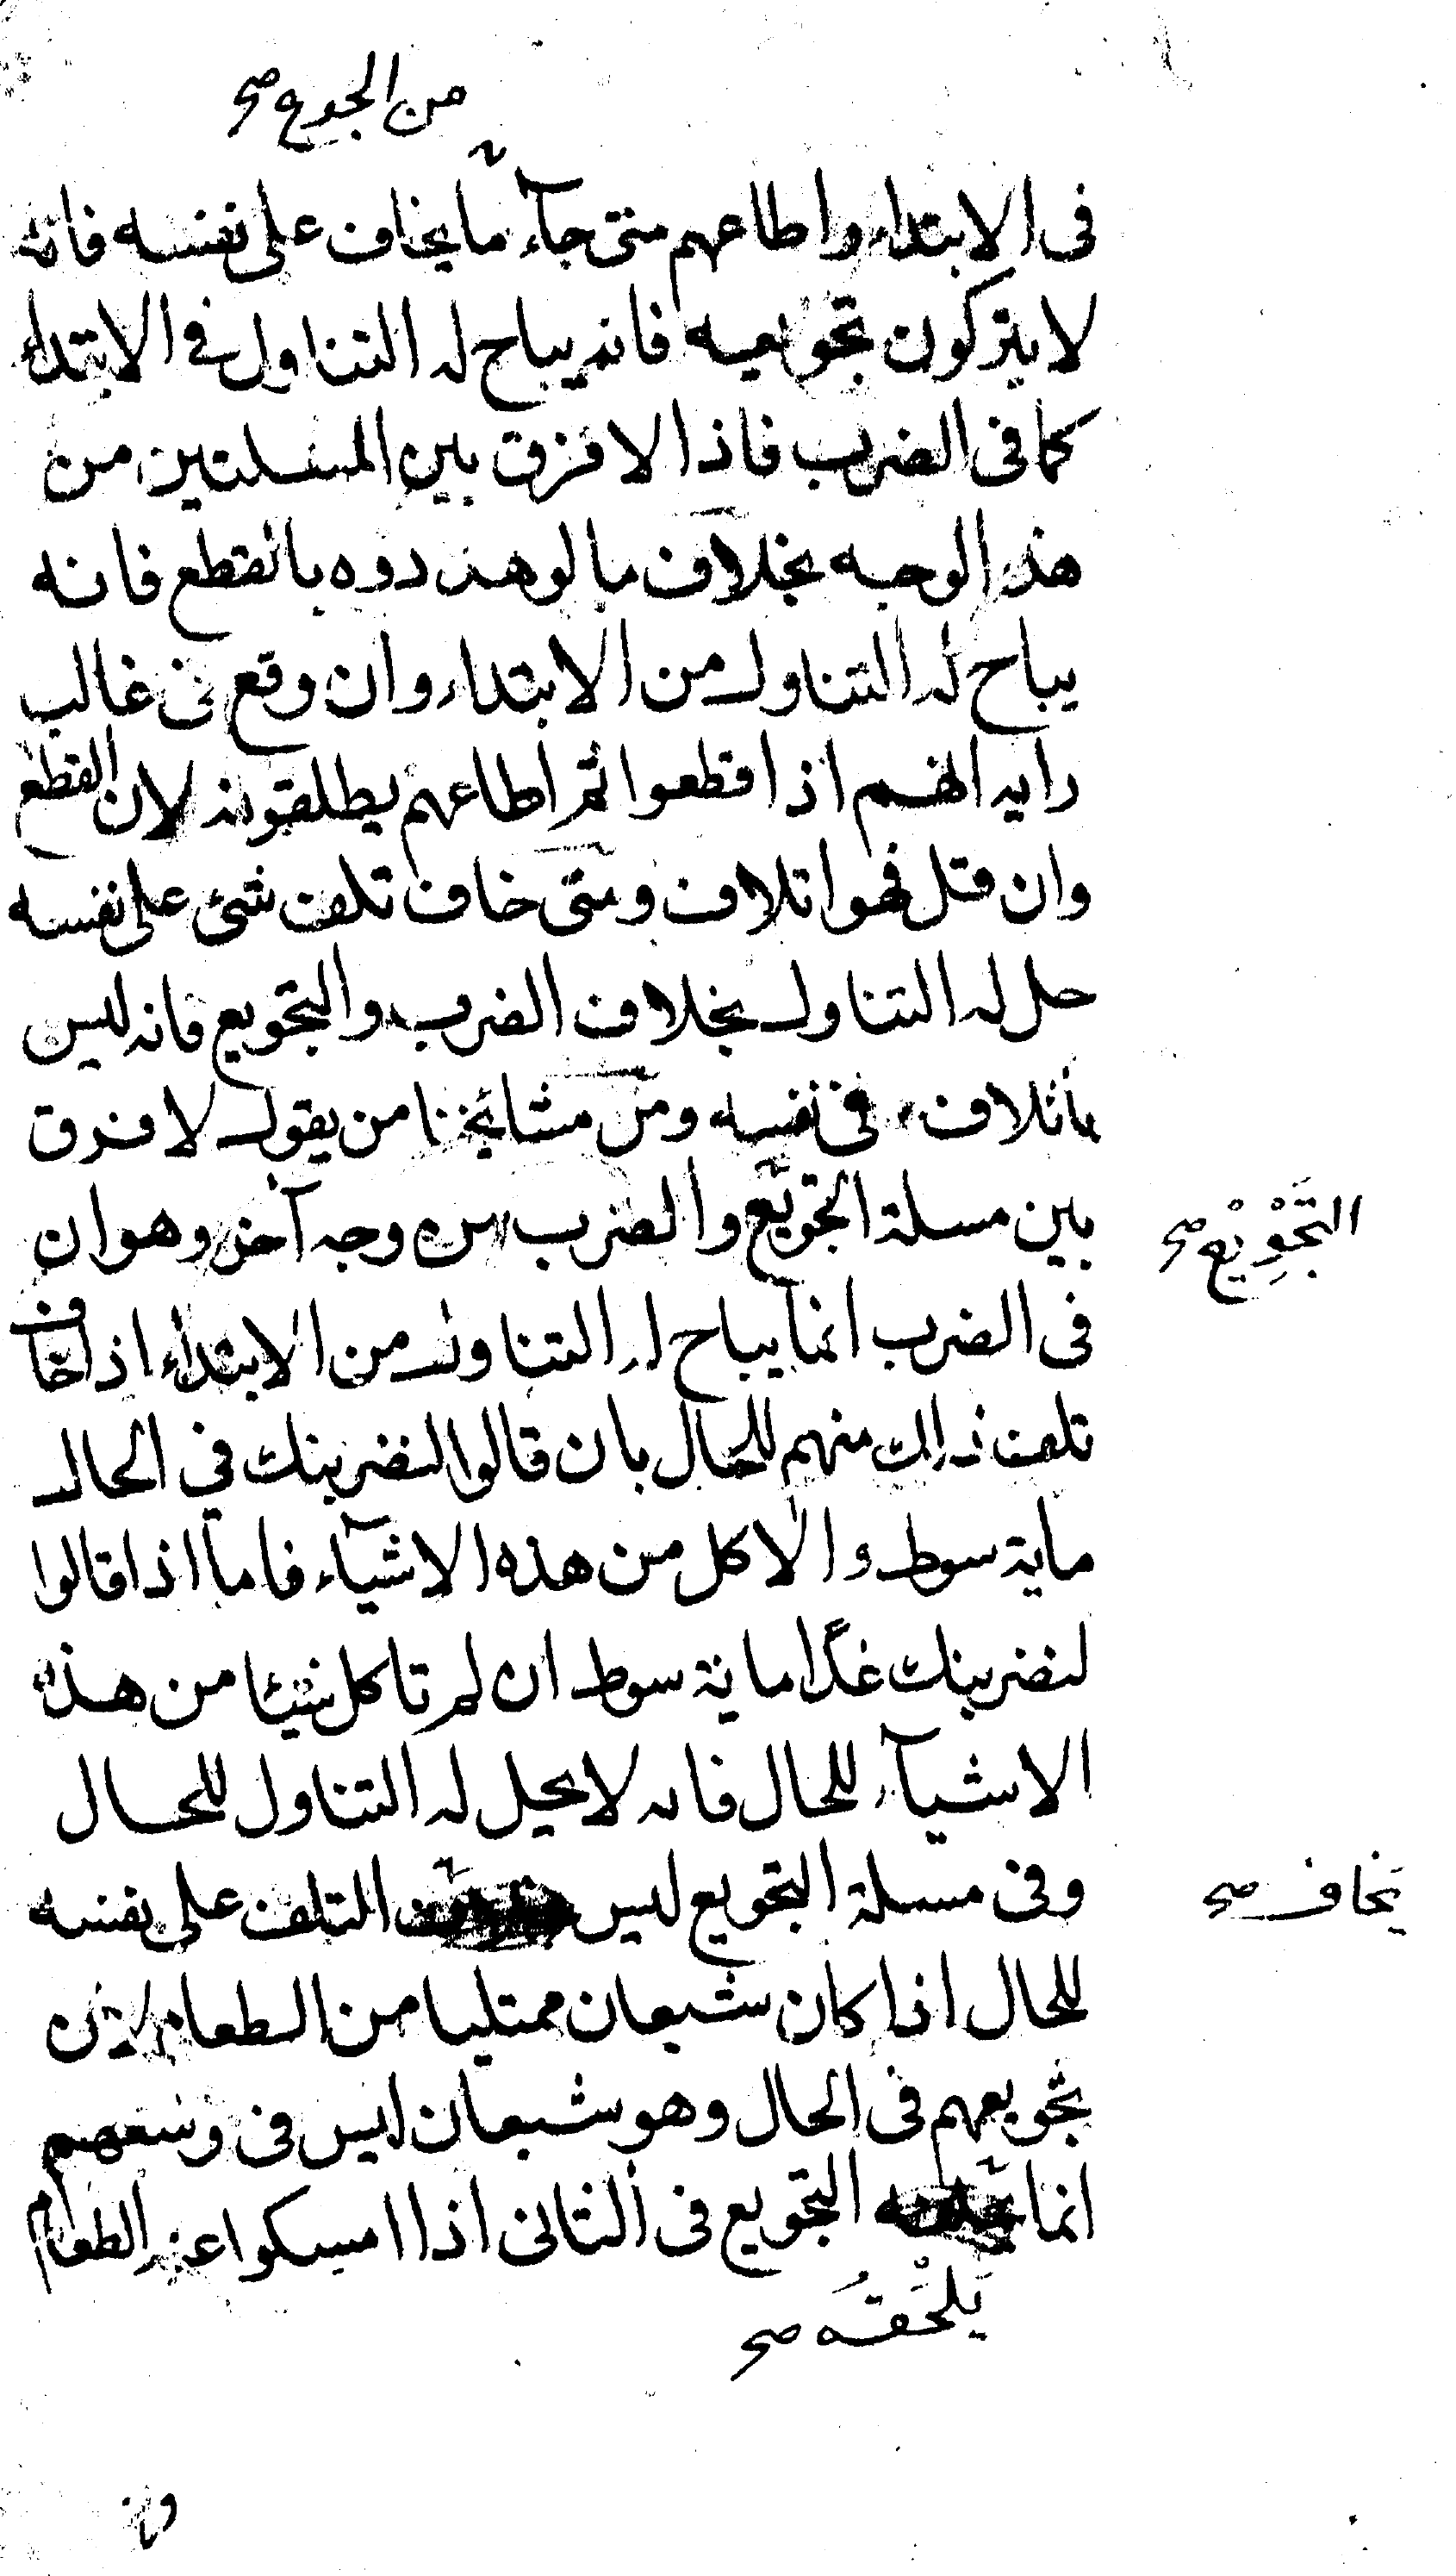 من الجوع صح
فى الابتداء واطاعهم متى جآء ما يخاف على نفسه فانه
لا يتركون تجويعه فانه يباح له التناول فى الابتداء
كما فى الضرب فاذا لا فرق بين المسلتين من
هذا الوجه بخلاف ما لو هددوه بالقطع فانه
يباح له التناول من الابتداء وان وقع فى غالب
رايه انهم اذا قطعوا ثم اطاعهم يطلقونه لان القطع
وان قل فهو اتلاف ومتى خاف تلف شئ على نفسه
حل له التناول بخلاف الضرب والتجويع فانه ليس
باتلاف فى نفسه ومن مشائخنا من يقول لا فرق
بين مسلة التجويع والضرب من وجه آخر وهو ان
التَجْوِيْع صح
فى الضرب انما يباح له التناول من الابتداء اذا خاف
تلف ذلك منهم للحال بان قالوا لنضربنك فى الحال
ماية سوط والا كل من هذه الاشيآء فاما اذا قالوا
لنضربنك غدًا ماية سوط ان لم تاكل شيئا من هذه
الاشيآء للحال فانه لا يحل له التناول للحال
وفى مسلة التجويع ليس التلف على نفسه
يَخاف صح
للحال اذا كان شبعان ممتليا من الطعام لان
تجويعهم فى الحال وهو شبعان ليس فى وسعهم
انما التجويع فى الثانى اذا امسكوا عنه الطعام
يَلْحَقُه صح